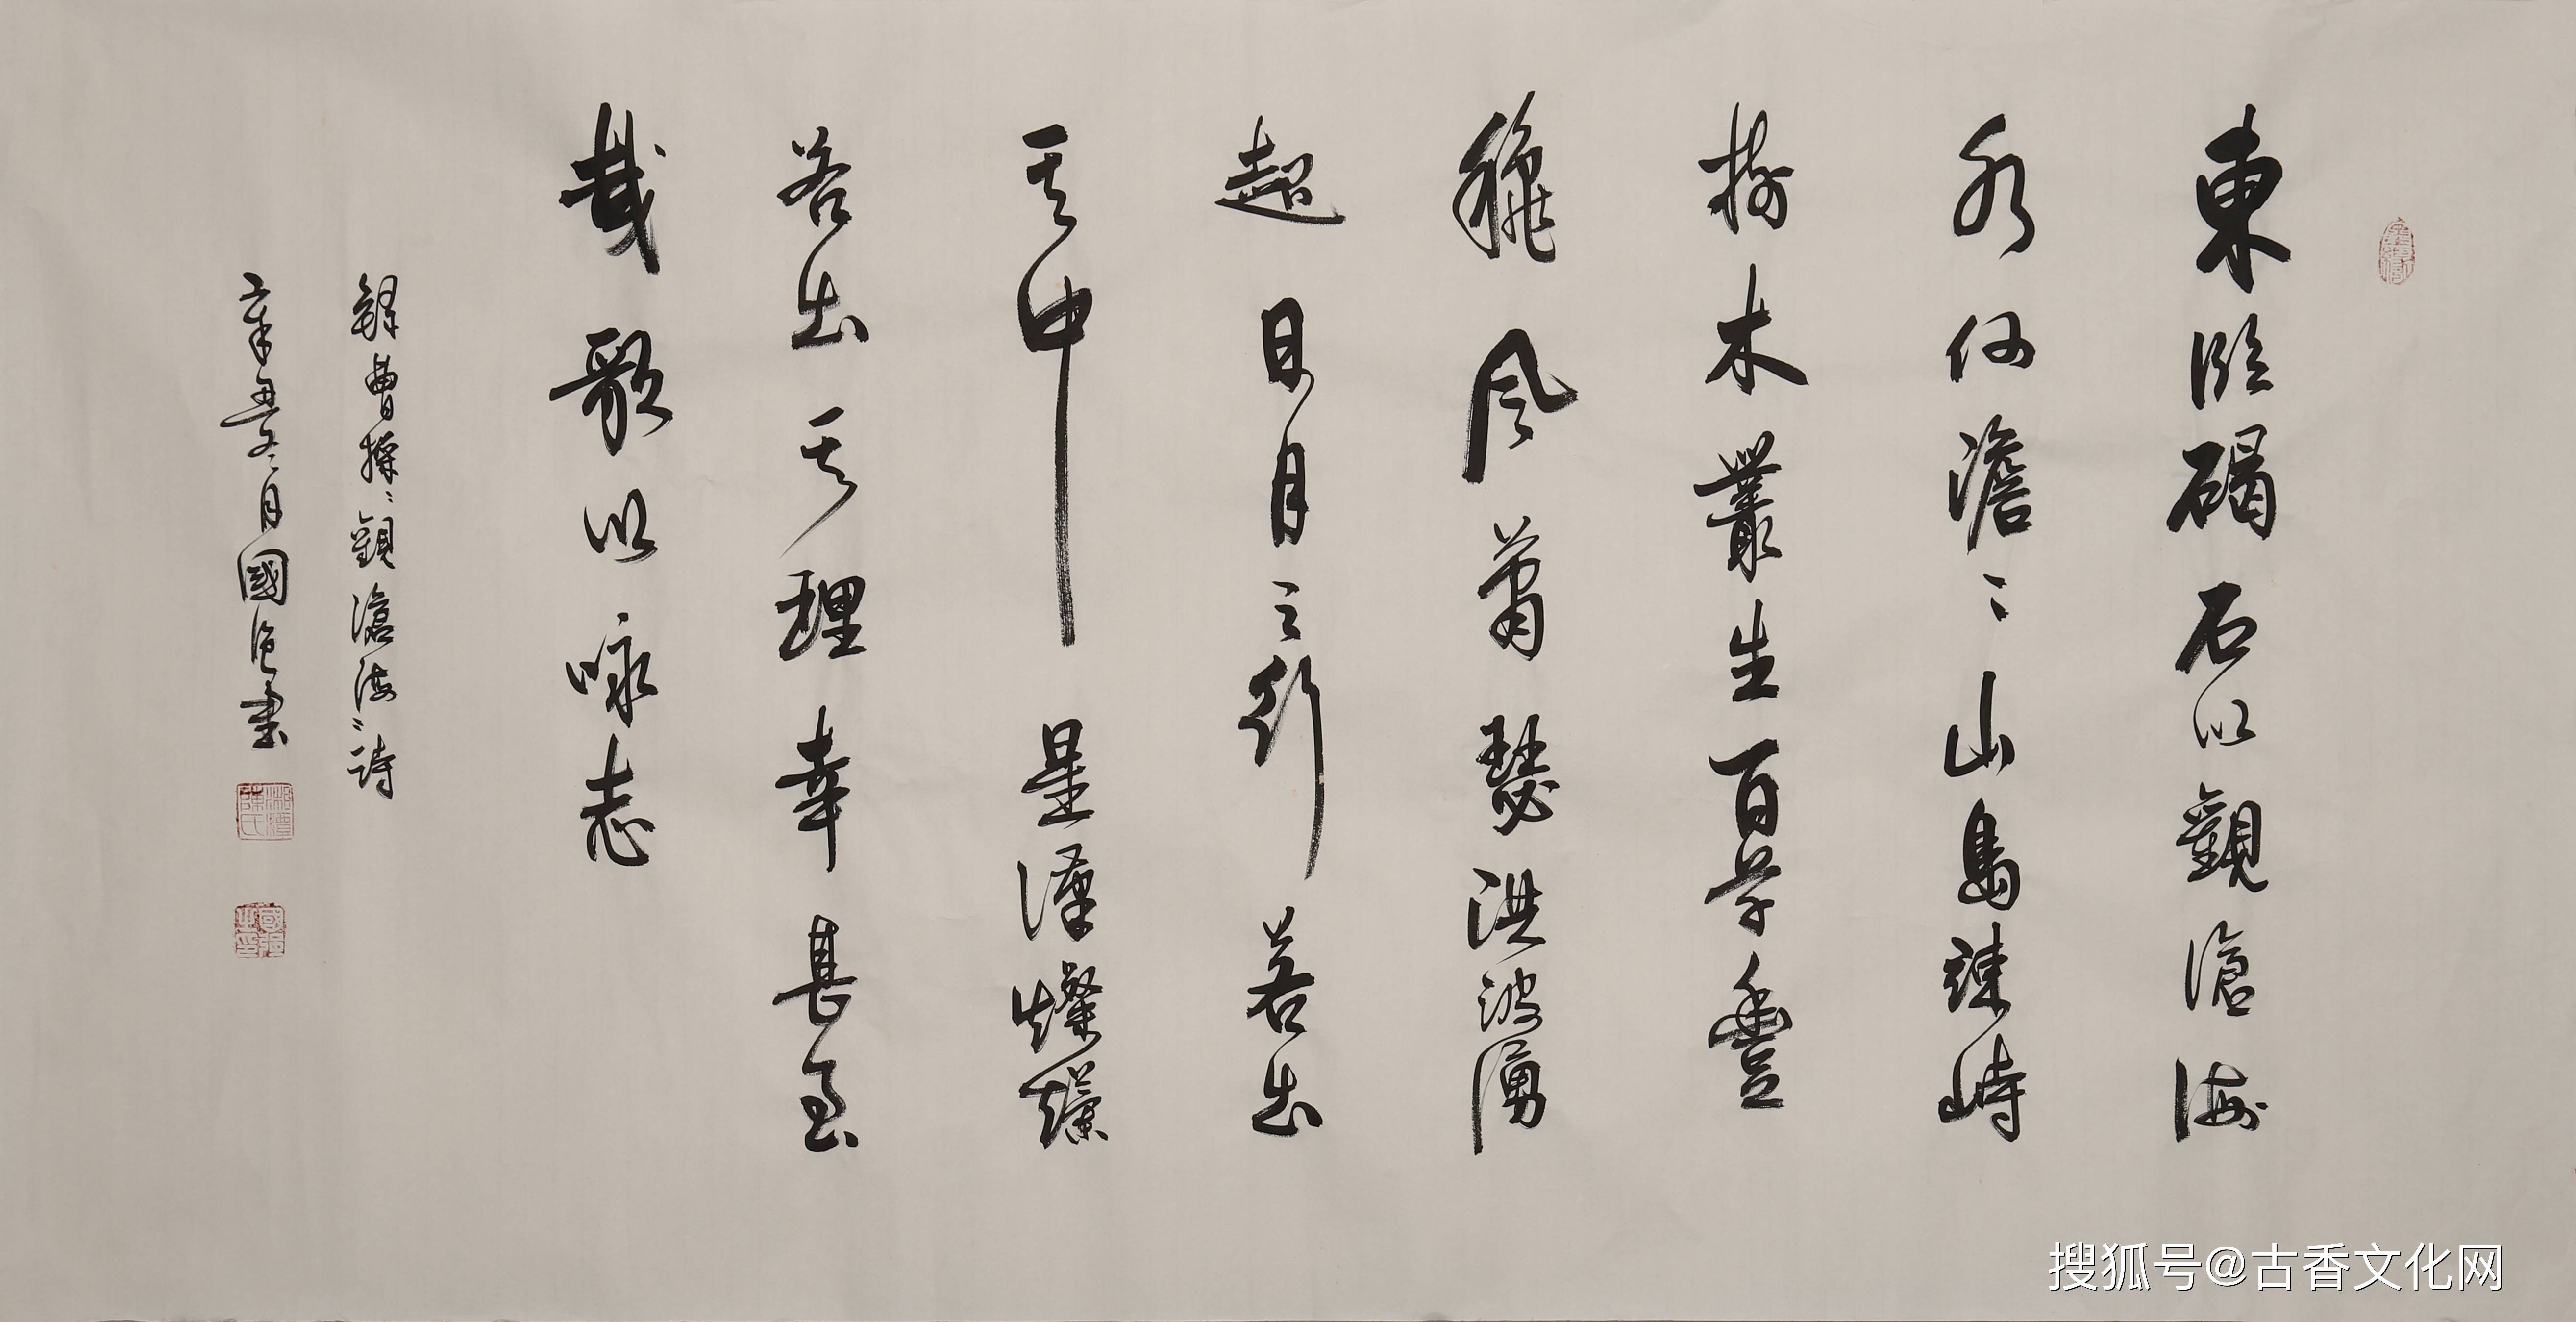 東臨碣石以觀滄海
水何澹〻山島竦峙
樹木叢生百草豐
穐風蕭瑟洪波湧
超日月之行若出
其中星漢燦爛
若出其理幸甚至
哉歌以咏志
錄曹操〻觀滄海〻詩
辛丑冬月國書
搜狐号@古香文化网